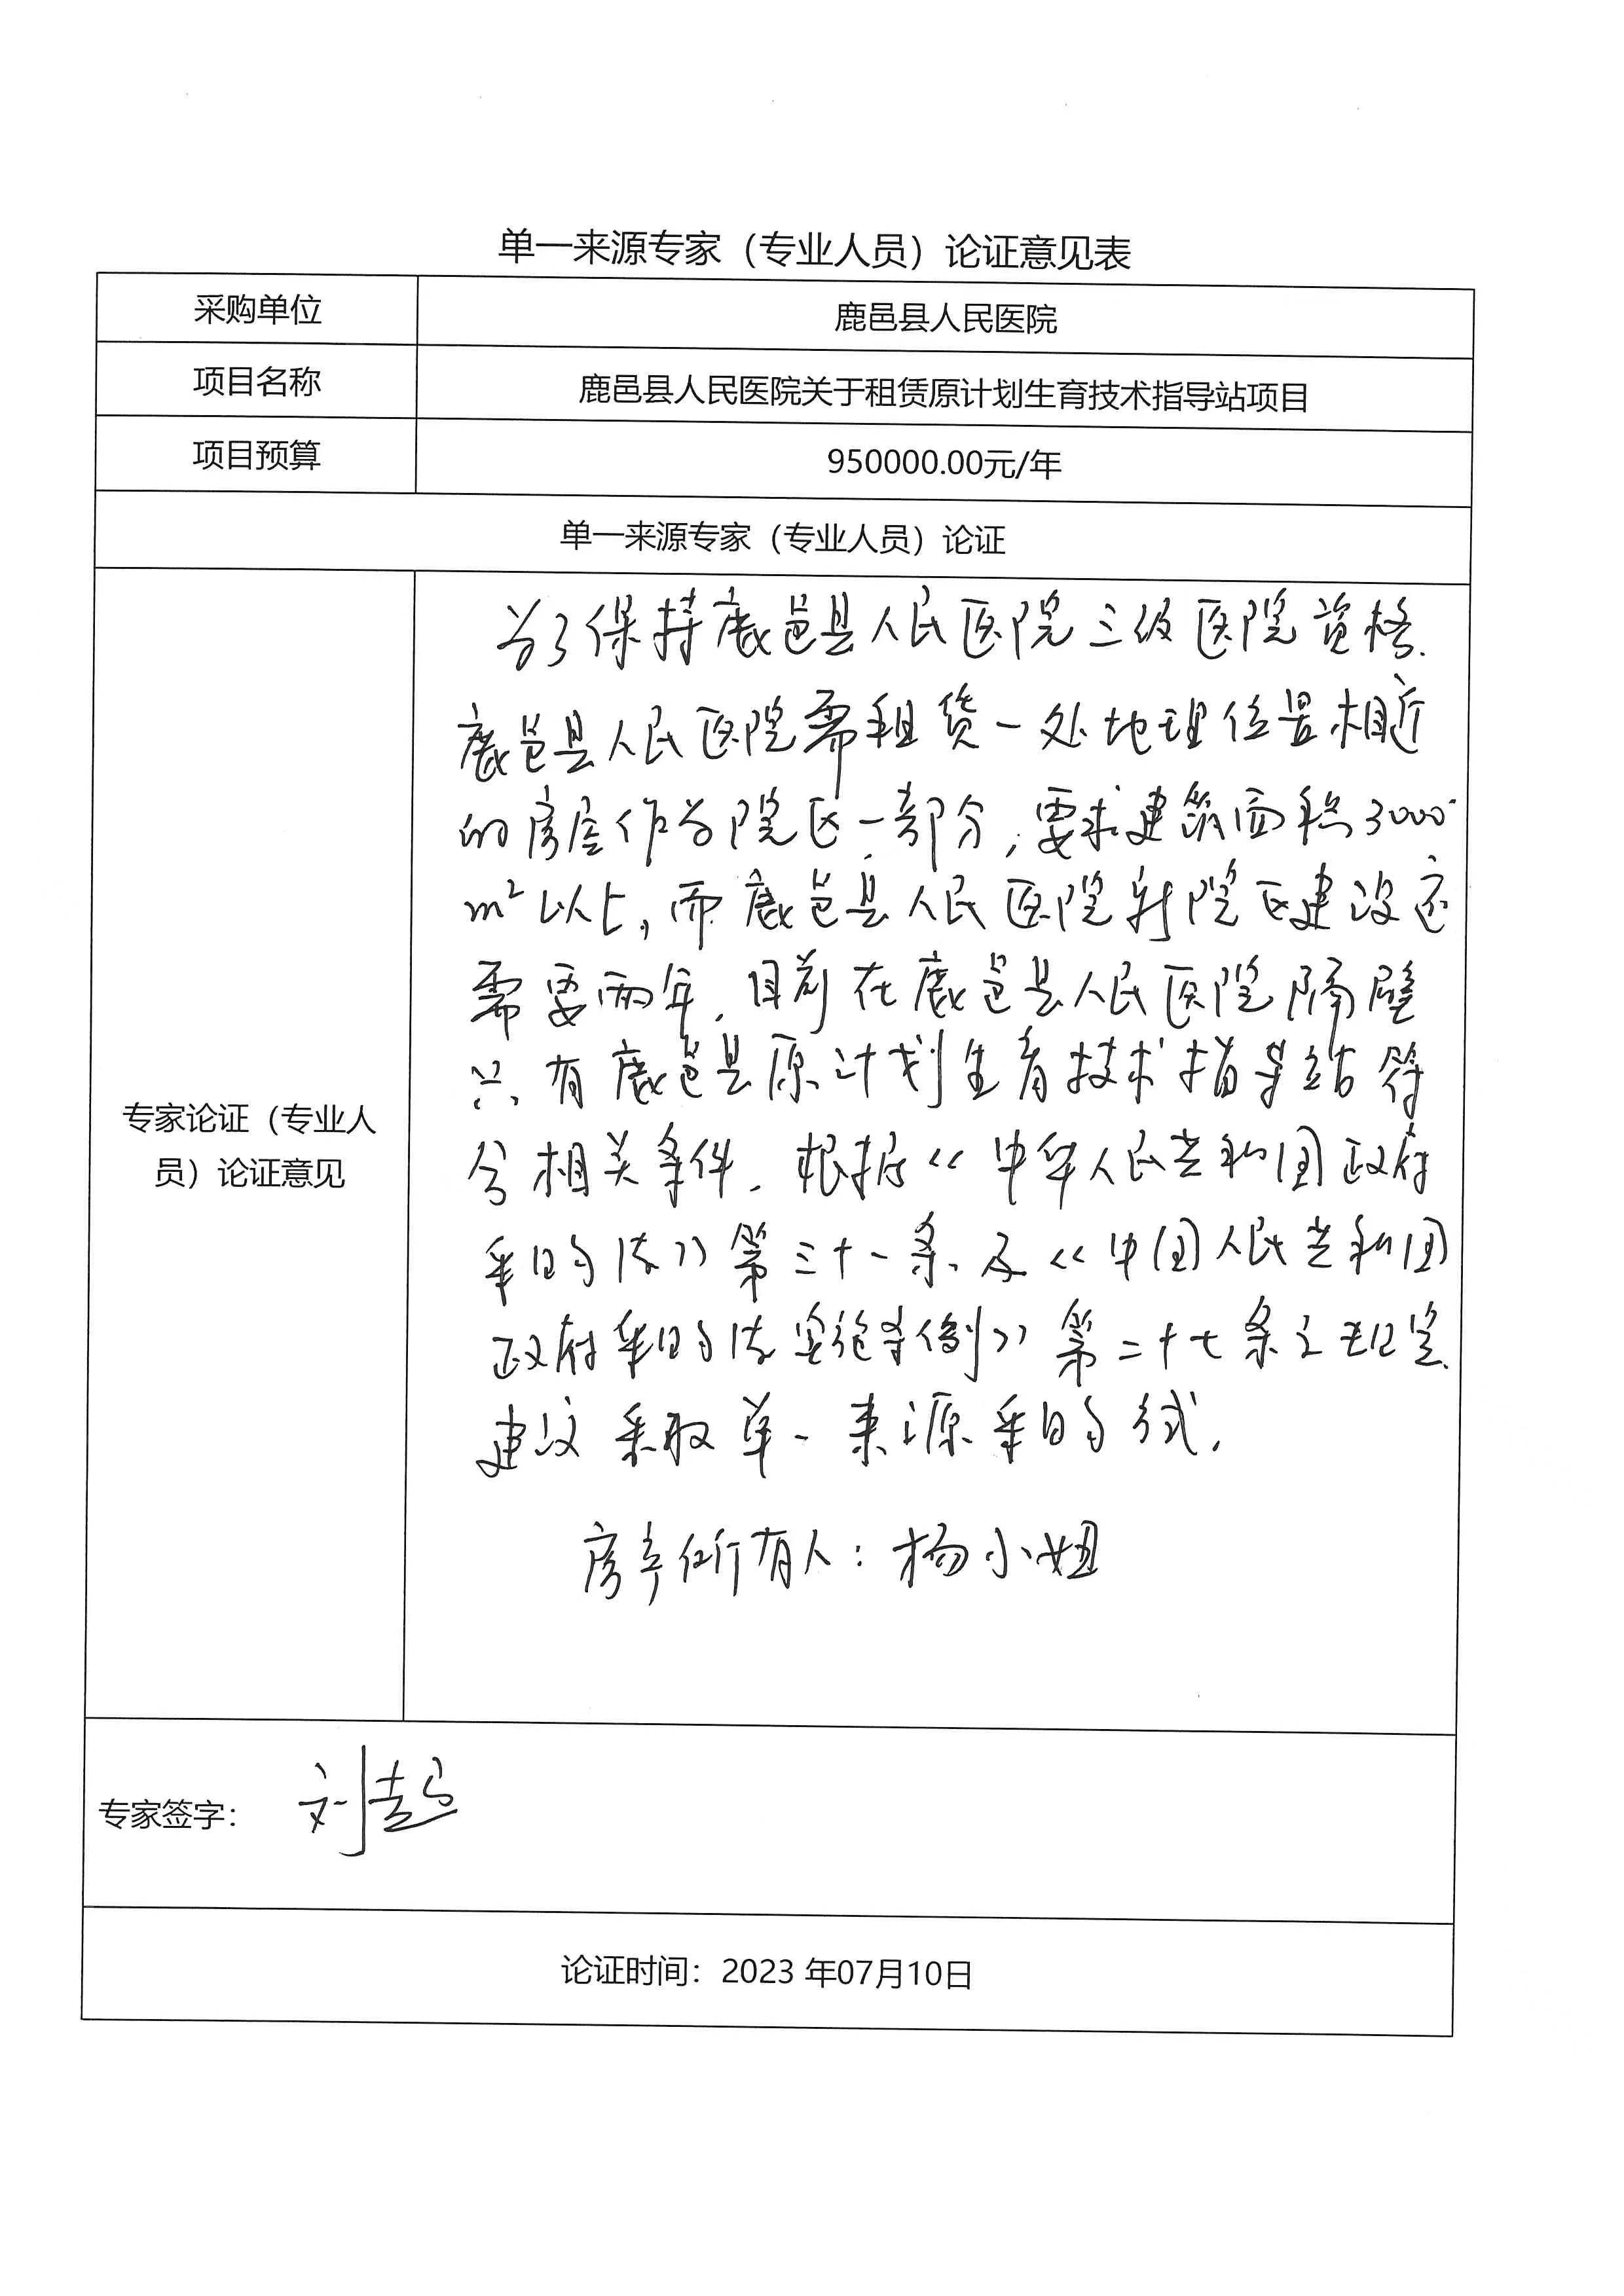 单一来源专家（专业人员）论证意见表
采购单位
鹿邑县人民医院
项目名称
鹿邑县人民医院关于租赁原计划生育技术指导站项目
项目预算
950000.00元/年
单一来源专家（专业人员）论证
专家论证（专业人
员）论证意见
为了保持鹿邑县人民医院三级医院资格.
鹿邑县人民医院需租赁一处地理位置相近
的房屋作为院区一部分,要求建筑面积3000
m²以上,而鹿邑县人民医院新院区建设还
需要两年.目前在鹿邑县人民医院隔壁
只有鹿邑县原计划生育技术指导站符
合相关条件.根据《中华人民共和国政府
采购法》第三十一条及《中国人民共和国
政府采购法实施条例》第二十七条之规定.
建议采取单一来源采购方式.
房产所有人:杨小妞
专家签字：
论证时间：2023 年07月10日